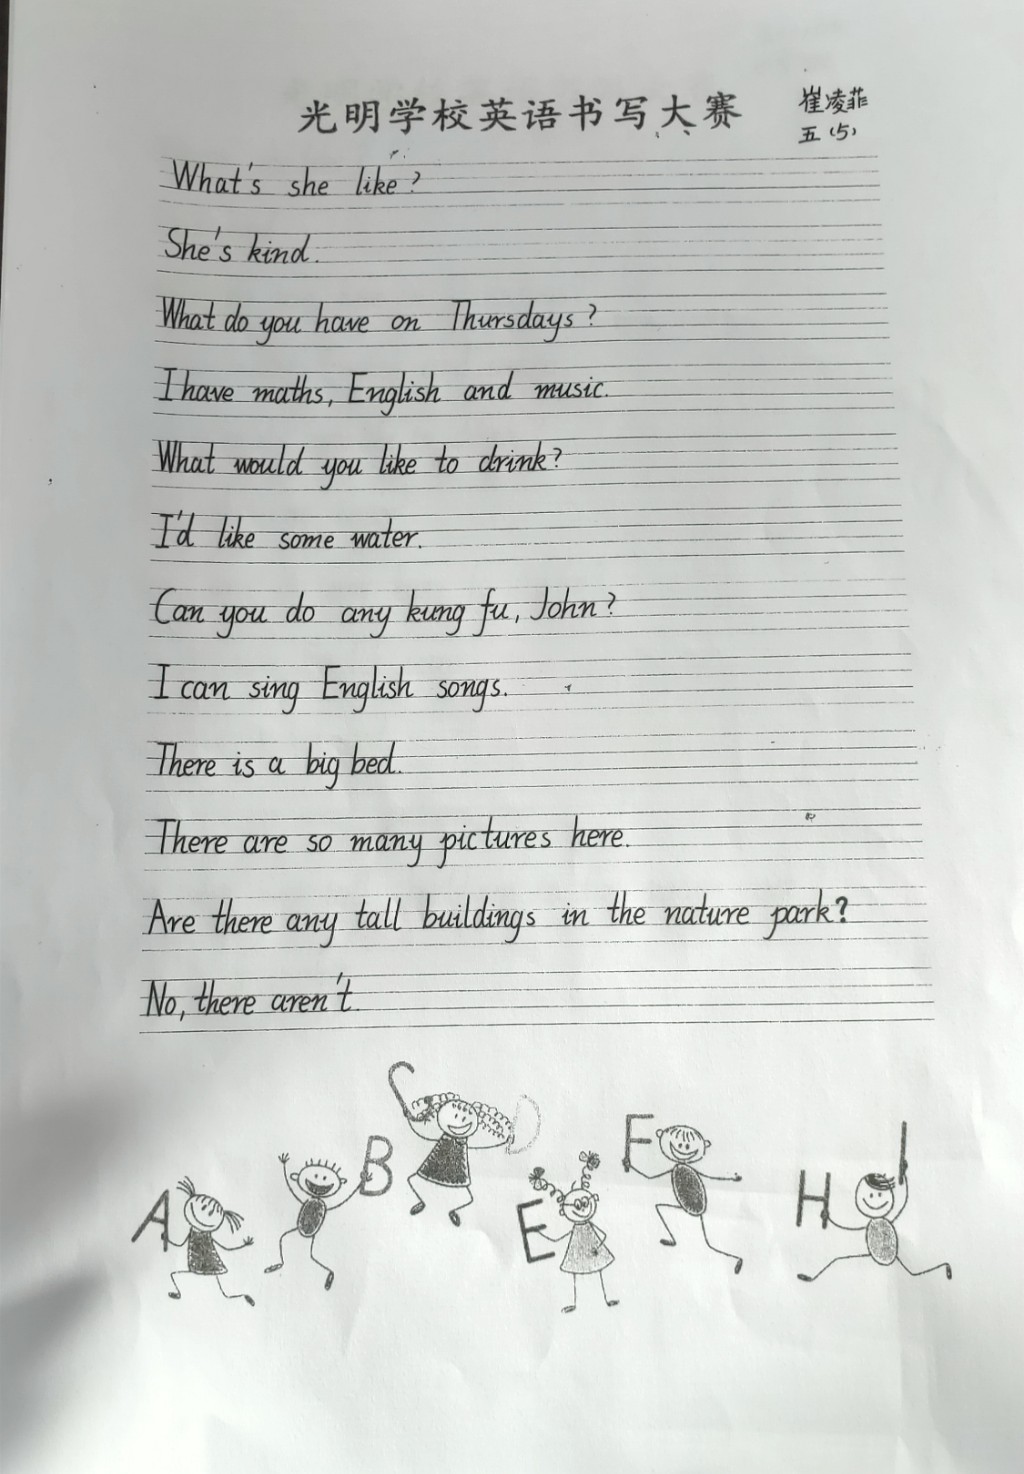 光明学校英语书写大赛
崔凌菲
五(5)
What's she like?
She's kind.
What do you have on Thursdays?
I have maths, English and music.
What would you like to drink?
I'd like some water.
Can you do any kung fu, John?
I can sing English songs.
There is a big bed.
There are so many pictures here.
Are there any tall buildings in the nature park?
No, there aren't.
A B C D E F H I